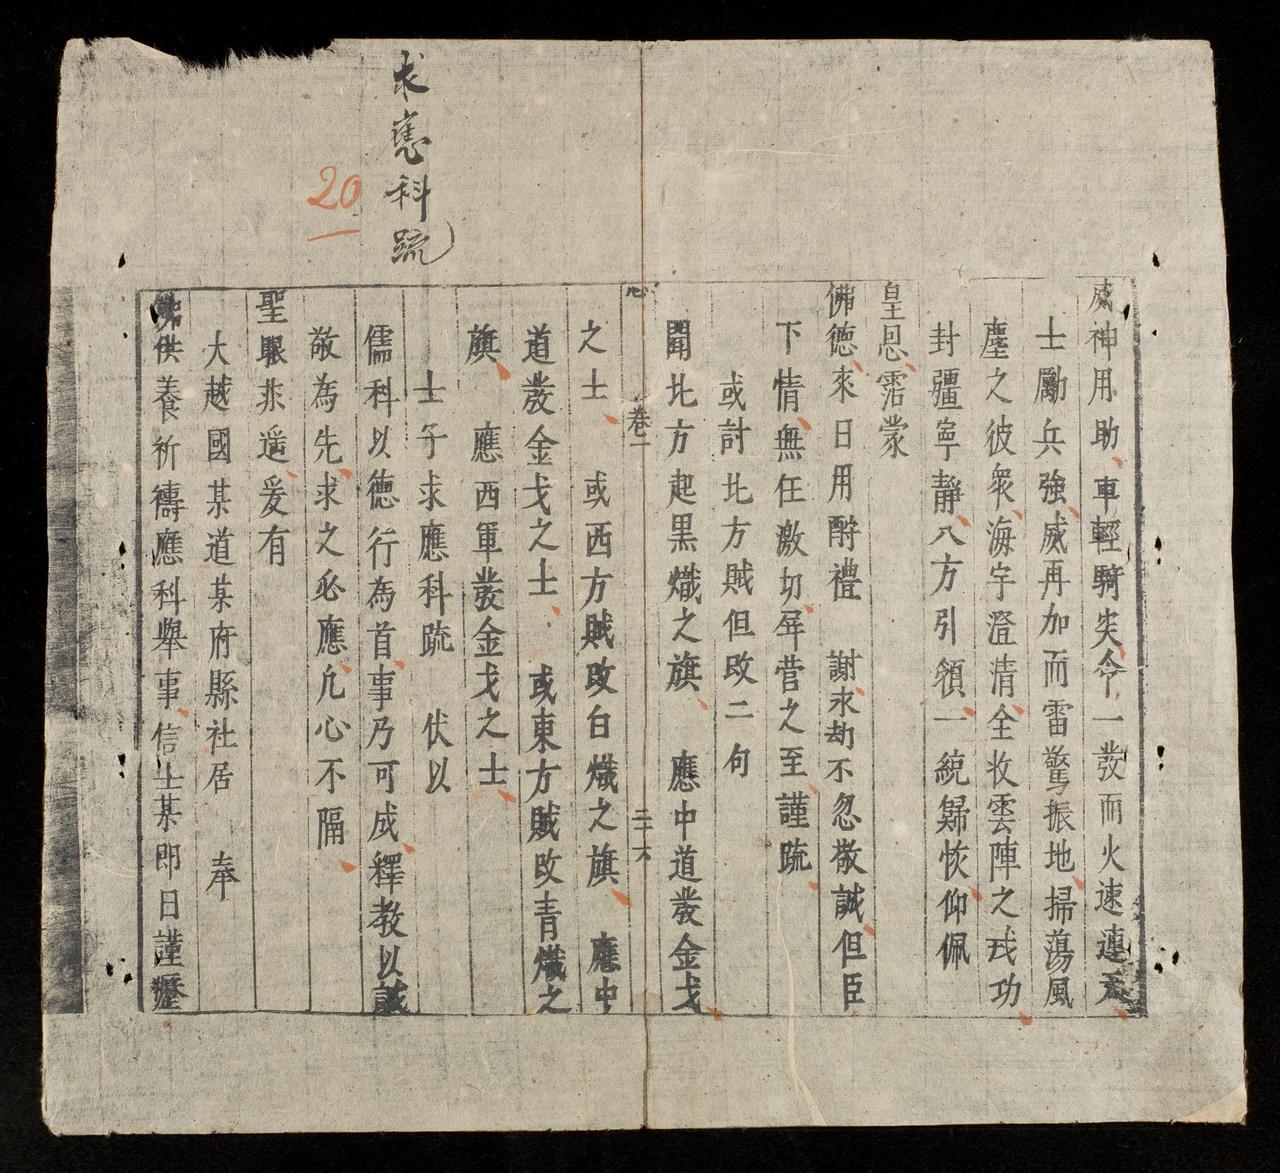 求應科疏
20
威神用助車輕騎突令一發而火速連天
士勵兵強威再加而雷驚振地掃蕩風
塵之彼衆海宇澄清全收雲陣之戎功
封疆寧靜八方引領一統歸恢仰佩
皇恩霑蒙
佛德來日用酧禮 謝永劫不忽敬誠但臣
下情無任激切屏营之至謹疏
或討北方賊但改二句
聞北方起黑熾之旗 應中道發金戈
卷一 三十六
之士 或西方賊改白熾之旗 應中
道發金戈之士 或東方賊改青熾之
旗 應西軍發金戈之士
士子求應科疏 伏以
儒科以德行為首事乃可成釋教以誠
敬為先求之必應凢心不隔
聖眼非遥爰有
大越國某道某府縣社居 奉
佛供養祈禱應科舉事信士某即日謹瀝